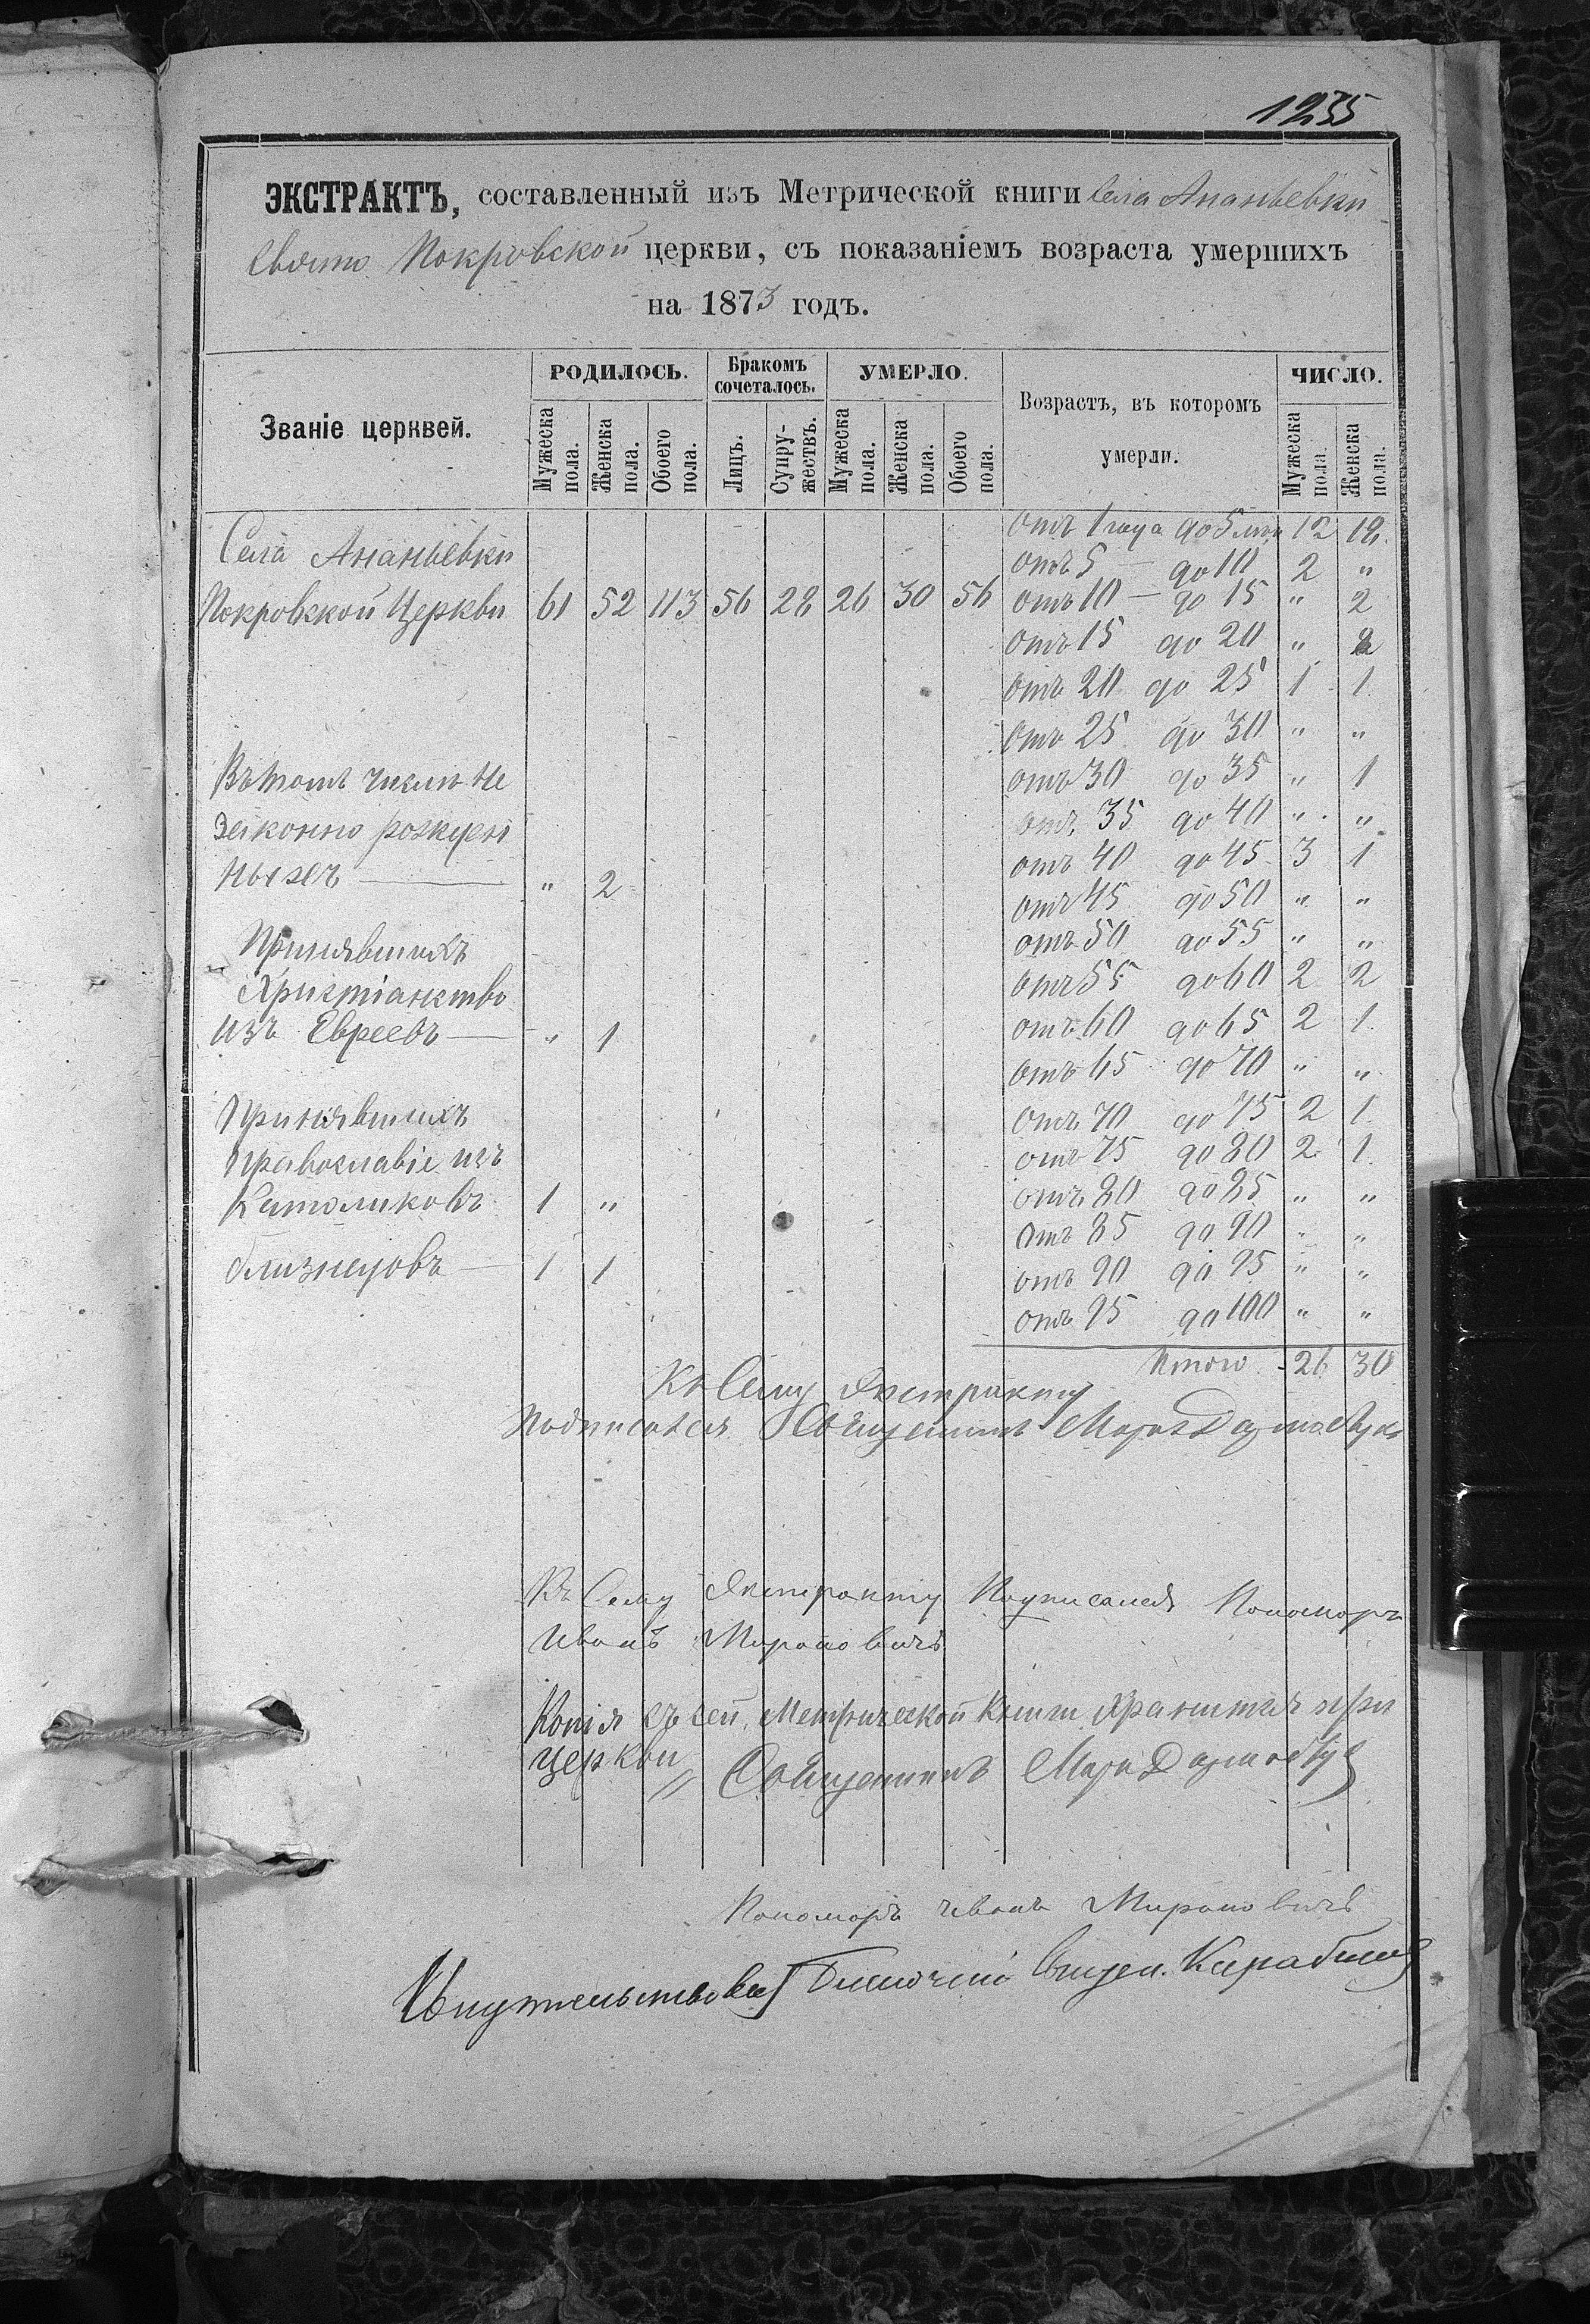 1235
ЭКСТРАКТЪ, составленный изъ Метрической книги села Ананьевки
Свято Покровской церкви, съ показаніемъ возраста умершихъ
на 1873 годъ.
Званіе церквей.
РОДИЛОСЬ.
Бракомъ сочеталось.
УМЕРЛО.
Возрастъ, въ которомъ умерли.
ЧИСЛО.
Мужеска пола.
Женска пола.
Обоего пола.
Лицъ.
Супружествъ.
Мужеска пола.
Женска пола.
Обоего пола.
Мужеска пола.
Женска пола.
Села Ананьевки
Покровской Церкви 61 52 113 56 28 26 30 56
отъ 1 года до 5 12 18
отъ 5 — до 10 2 "
отъ 10 — до 15 " 2
отъ 15 до 20 " 2
отъ 20 до 25 1 1
отъ 25 до 30 " "
отъ 30 до 35 " 1
отъ 35 до 40 " "
отъ 40 до 45 3 1
отъ 45 до 50 " "
отъ 50 до 55 " "
отъ 55 до 60 2 2
отъ 60 до 65 2 1
отъ 65 до 70 " "
отъ 70 до 75 2 1
отъ 75 до 80 2 1
отъ 80 до 85 " "
отъ 85 до 90 " "
отъ 90 до 95 " "
отъ 95 до 100 " "
Итого 26 30
Въ томъ числѣ не
законно рожден
ныхъ — " 2
Принявшихъ
Христіанство
изъ Евреевъ — " 1
Принявшихъ
Православіе изъ
Католиковъ 1 "
близнецовъ — 1 1
Къ Сему Экстракту
подписался Священникъ
Къ Сему Экстракту Подписался Пономарь
Иванъ Мироновичъ
Копія съ сей Метрической Книги хранится при
церкви Священникъ
Пономарь Иванъ Мироновичъ